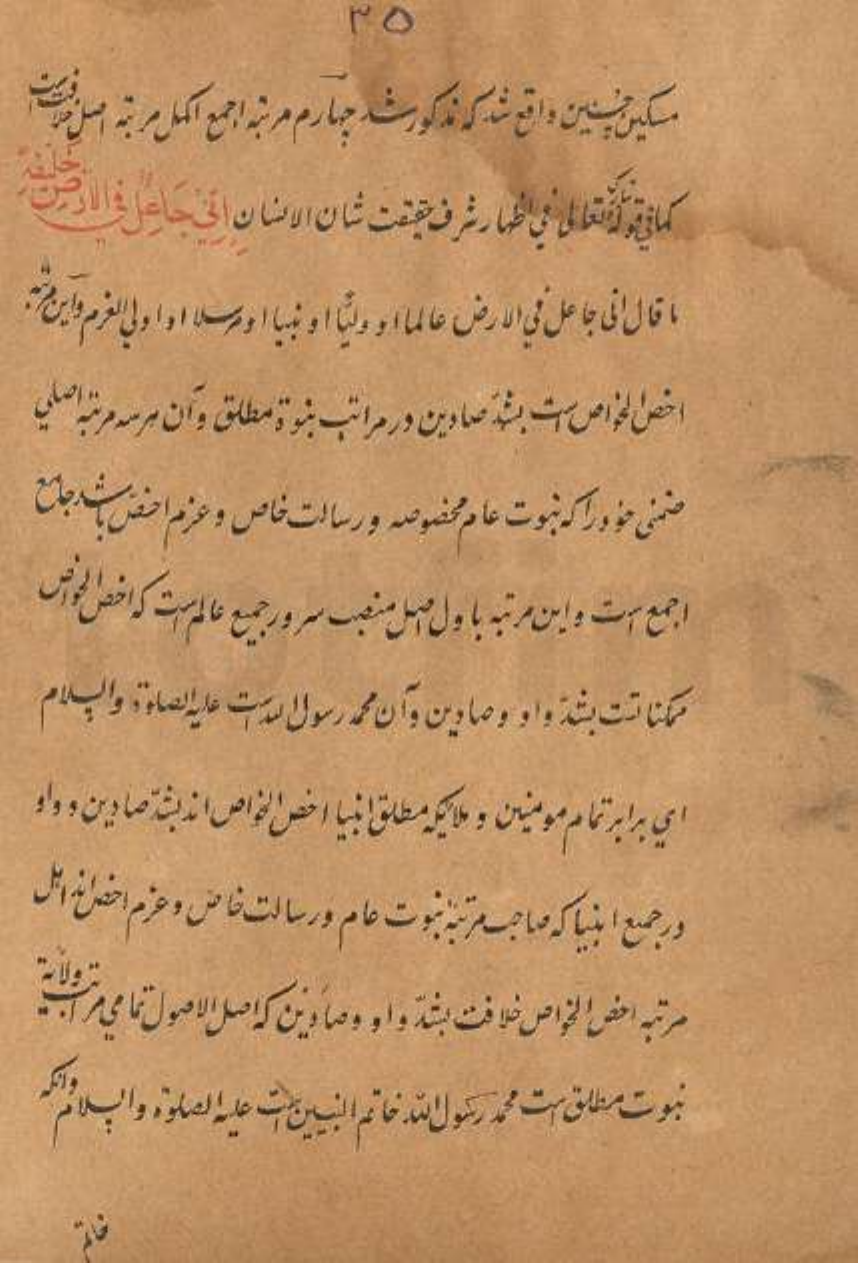 ۳۵
مسکین چنین واقع شد که مذکور شد چهارم مرتبه اجمع اکمل مرتبه اصل خلافت است
کما فی قوله تبارک تعالی فی اظهار شرف حقیقت شان الانسان اِنّیِ جَاعِلٌ فی الارضِ خَلیفَةً
ما قال انی جاعل فی الارض عالما او ولیّا او نبیا او مرسلا او اولی العزم و این مرتبه
اخص الخواص است بشدّ صادین در مراتب نبوة مطلق و آن هر سه مرتبه اصلی
ضمنی خود را که نبوت عام مخصوصه و رسالت خاص و عزم اخصّ باشد جامع
اجمع است و این مرتبه باول اصل منصب سرور جمیع عالم است که اخص الخواص
ممکناتست بشدّ واو و صادین و آن محمد رسول الله است علیه الصلوة والسلام
ای برابر تمام مومنین و ملایکه مطلق انبیا اخص الخواص اند بشدّ صادین و واو
و در جمیع انبیا که صاحب مرتبهٔ نبوت عام و رسالت خاص و عزم اخص اند اهل
مرتبه اخص الخواص خلافت بشدّ واو و صادین که اصل الاصول تمامی مراتب ولایة
نبوت مطلق است محمد رسول الله خاتم النبیین است علیه الصلوة والسلام وانکه
خاتم